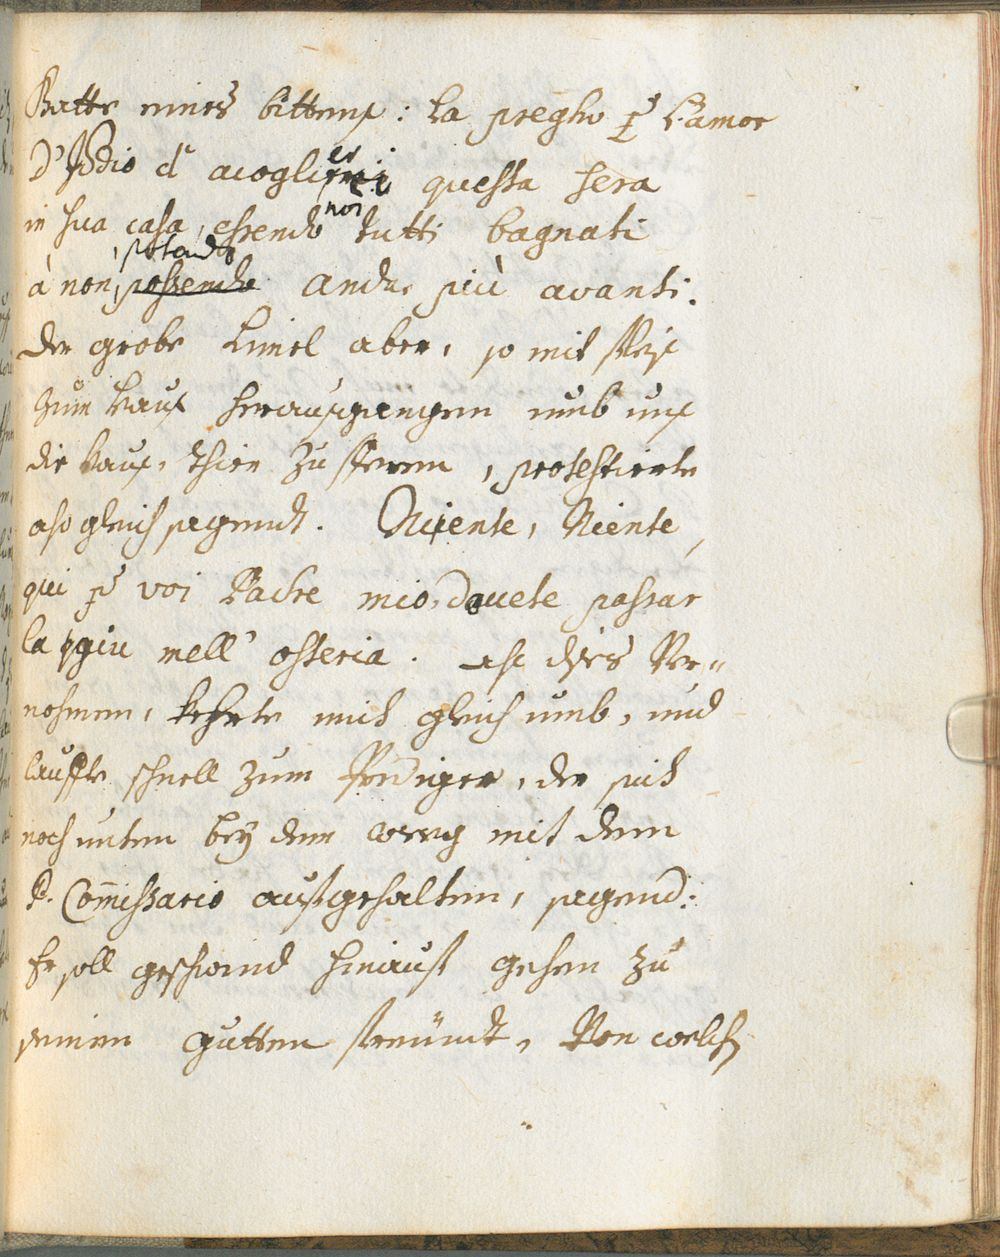 Batte eines bittens: La pregho p̲ l'amor
D'Iddio d' acoglierci questa sera
in sua casa, essendo noi tutti bagnati
à non potendo possendo andar più avanti.
Der grobe Limel aber, so mit fleiß
zum Hauß herausgiengen umb unß
die Hauß, thier zu sperren, protestierte
also gleich sagendt. Niente, Niente,
qui p̲ voi Padre mio, dovete passar
la giu nell' osteria. Als dises Ver-
nohmen, kehrte mich gleich umb, und
lauffte schnell zum Prediger, der sich
noch unten bey dem weeg mit dem
P. Com̄issario aufgehalten, sagend:
Er soll geschwind hinauf gehen zu
seinen gutten freündt, Von welch